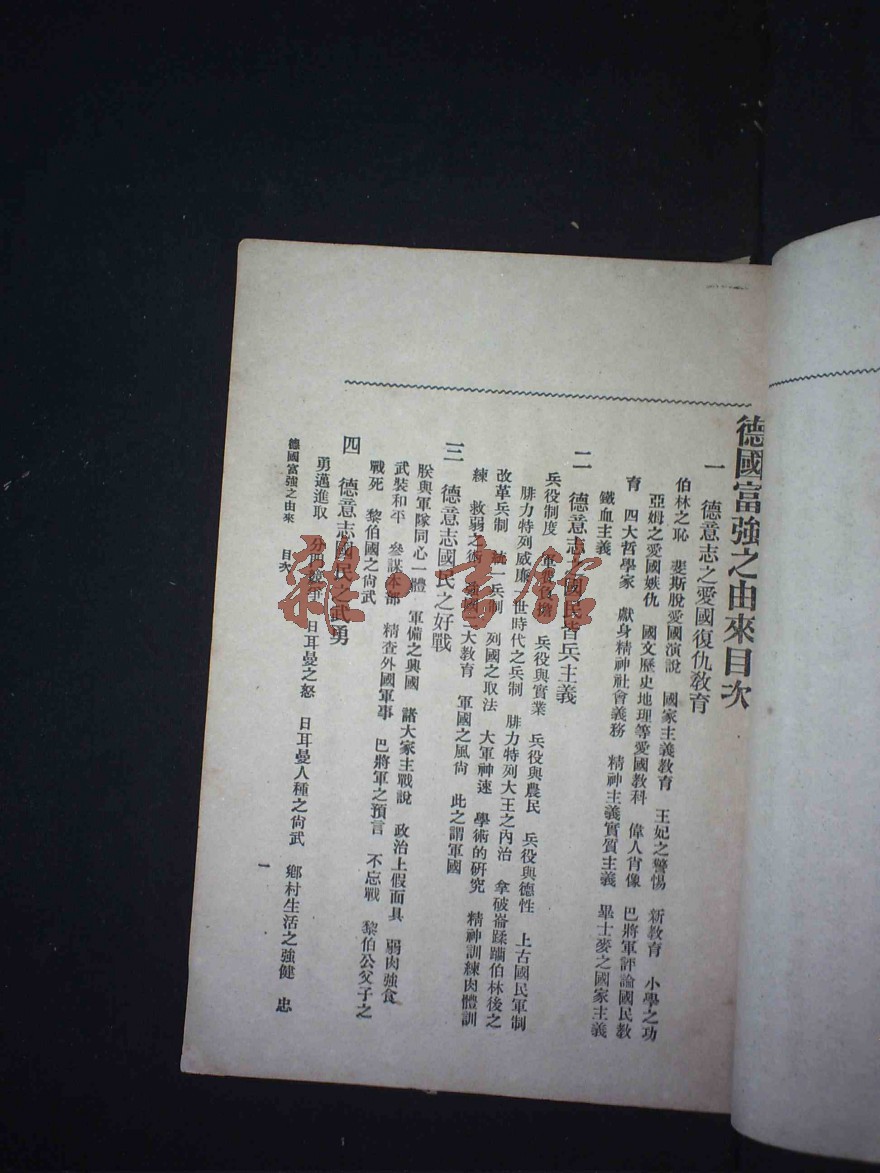 德國富強之由來目次
一 德意志之愛國復仇教育
伯林之恥 斐斯脫愛國演說 國家主義教育 王妃之警惕 新教育 小學之功
亞姆之愛國嫉仇 國文歷史地理等愛國教科 偉人肖像 巴將軍評論國民教
育 四大哲學家 獻身精神社會義務 精神主義實質主義 畢士麥之國家主義
鐵血主義
二 德意志國民皆兵主義
兵役制度 兵役與實業 兵役與農民 兵役與德性 上古國民軍制
腓力特列威廉一世時代之兵制 腓力特列大王之內治 拿破崙蹂躪伯林後之
改革兵制 統一兵制 列國之取法 大軍神速 學術的研究 精神訓練肉體訓
練 救弱之術 強國一大教育 軍國之風尚 此之謂軍國
三 德意志國民之好戰
朕與軍隊同心一體 軍備之興國 諸大家主戰說 政治上假面具 弱肉強食
武裝和平 參謀本部 精查外國軍事 巴將軍之預言 不忘戰 黎伯公父子之
戰死 黎伯國之尚武
四 德意志國民之武勇
勇邁進取 日耳曼之怒 日耳曼人種之尚武 鄉村生活之強健 忠
德國富強之由來 目次
一
雜·書館